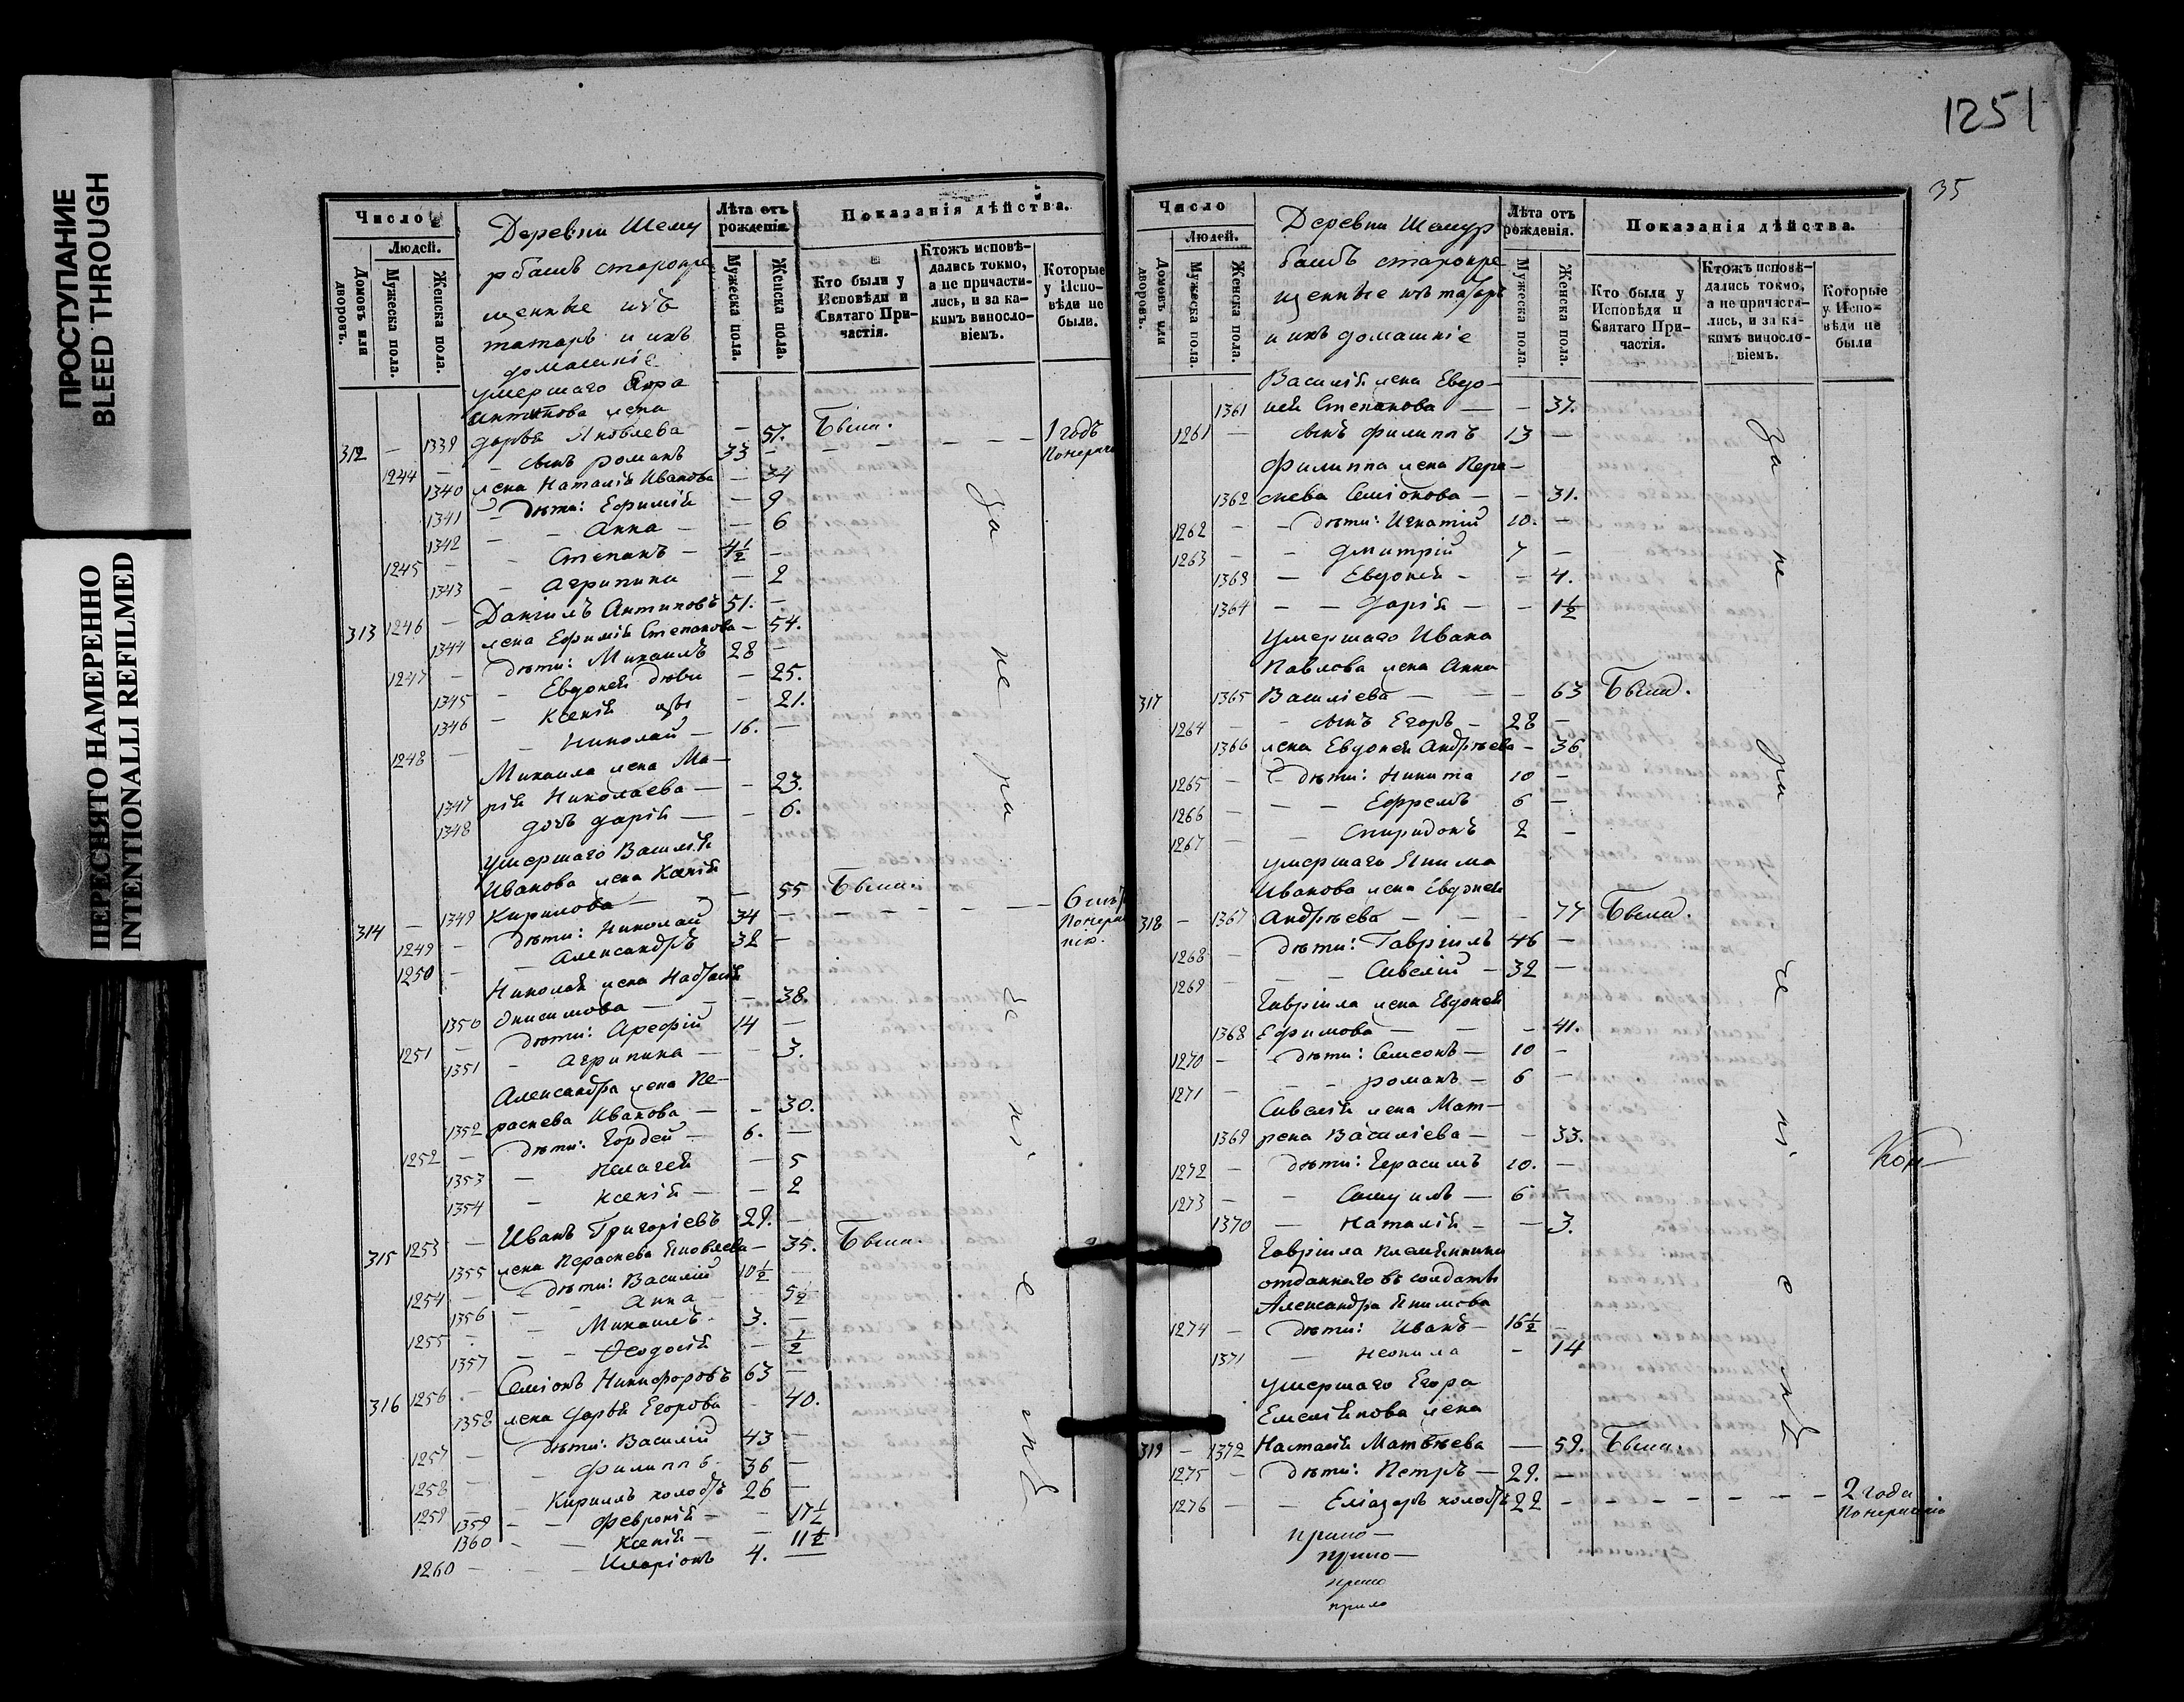 ПРОСТУПАНИЕ
BLEED THROUGH
ПЕРЕСНЯТО НАМЕРЕННО
INTENTIONALLI REFILMED
Число
Людей.
Домовъ или дворовъ.
Мужеска пола.
Женска пола.
Деревни Шему
рбашъ старокре
щенные изъ
татаръ и ихъ
домашніе
Лѣта отъ рожденія.
Мужеска пола.
Женска пола.
Показанія дѣйства.
Кто были у Исповѣди и Святаго Причастія.
Ктожъ исповѣдались токмо, а не причастились, и за какимъ винословіемъ.
Которые у Исповѣди не были.
умершаго
жена
312 – 1339 Дарья Яковлева – 57. Были.
1244 – сынъ Романъ 33 – 1 годъ
1340 жена Наталія Иванова – 34
1341 дѣти: Ефимія – 9
1342 – Анна – 6
1245 – Степанъ – 4½ –
1343 – Агрипина – 2
313 1246 – Даніилъ Антиповъ 51. –
1344 жена Ефимія Степанова – 54.
1247 – дѣти: Михаилъ 28 –
1345 – Евдокія – 25.
1346 – Ксенія – 21.
1248 – Николай – 16. –
Михаила жена Ма–
1347 рія Николаева – – 23.
1348 дочь Дарія – – 6.
умершаго Василія
Иванова жена Ксенія
314 – 1349 Кирилова – – 55 Были.
1249 – дѣти: Николай 34 – 6 лѣтъ
1250 – Александръ 32 –
Николая жена
1350 Онисимова – – 38.
1251 – дѣти: Арефій 14 –
1351 – Агрипина – – 3.
Александра жена Пе–
1352 раскева Иванова – – 30.
1252 – дѣти: Гордей – 6. –
1353 – Пелагея – 5
1354 – Ксенія – – 2
315 1253 – Иванъ Григоріевъ 29. –
1355 жена Параскева Яковлева – 35. Были.
1254 – дѣти: Василій 10½ –
1356 – Анна – 5½
1255 – Михаилъ 3. –
1357 – – Ѳеодосія – ½
316 1256 – Семіонъ Никифоровъ 63 –
1358 жена Дарья Егорова – 40.
1257 – дѣти: Василій 43 –
1258 – Филиппъ 36 –
1259 – Кирилъ холостъ 26 –
1359 – – Февронія – – 17½
1360 – – Ксенія – – 11½
1260 – – Иларіонъ 4. –
За не раченіемъ
1251
35
Число
Людей.
Домовъ или дворовъ.
Мужеска пола.
Женска пола.
Деревни Шемур
башъ старокре
щенные изъ татаръ
и ихъ домашніе
Лѣта отъ рожденія.
Мужеска пола.
Женска пола.
Показанія дѣйства.
Кто были у Исповѣди и Святаго Причастія.
Ктожъ исповѣдались токмо, а не причастились, и за какимъ винословіемъ.
Которые у Исповѣди не были
Василія жена Евдо–
1361 кія Степанова – – 37.
1261 – сынъ Филиппъ 13 –
Филиппа жена Пара–
1362 скева Семіонова – – 31.
1262 – – дѣти: Игнатій 10. –
1263 – – Дмитрій 7 –
1363 – Евдокія – – 4.
1364 – – Дарія – – 1½
умершаго Ивана
Павлова жена Анна
317 1365 Василіева – – – 63 Была.
1264 – – сынъ Егоръ – 28 –
1366 жена Евдокія Андрѣева – 36
1265 – дѣти: Никита 10 –
1266 – – – Ефремъ 6 –
1267 – – Спиридонъ 2 –
умершаго Якима
Иванова жена Евдокія
318 – 1367 Андрѣева – – – 77 Была.
1268 – дѣти: Гавріилъ 46 –
1269 – – – Савелій – 32 –
Гавріила жена Евдокія
1368 Ефимова – – – 41.
1270 – – дѣти: Самсонъ – 10 –
1271 – – – Романъ – 6 –
Савелія жена Мат–
1369 рена Василіева – – 33.
1272 – дѣти: Герасимъ 10. –
1273 – – Самуилъ – 6 –
1370 – Наталія – – 3.
Гавріила племянника
отданнаго въ солдаты
Александра Якимова
1274 – дѣти: Иванъ – 16½ –
1371 – Неонила – 14
умершаго Егора
Емеліянова жена
319 – 1372 Наталія Матвѣева – 59. Были.
1275 – дѣти: Петръ – 29. –
1276 – – Еліазаръ холостъ 22 – – – – – – – 2 года
За не раченіемъ